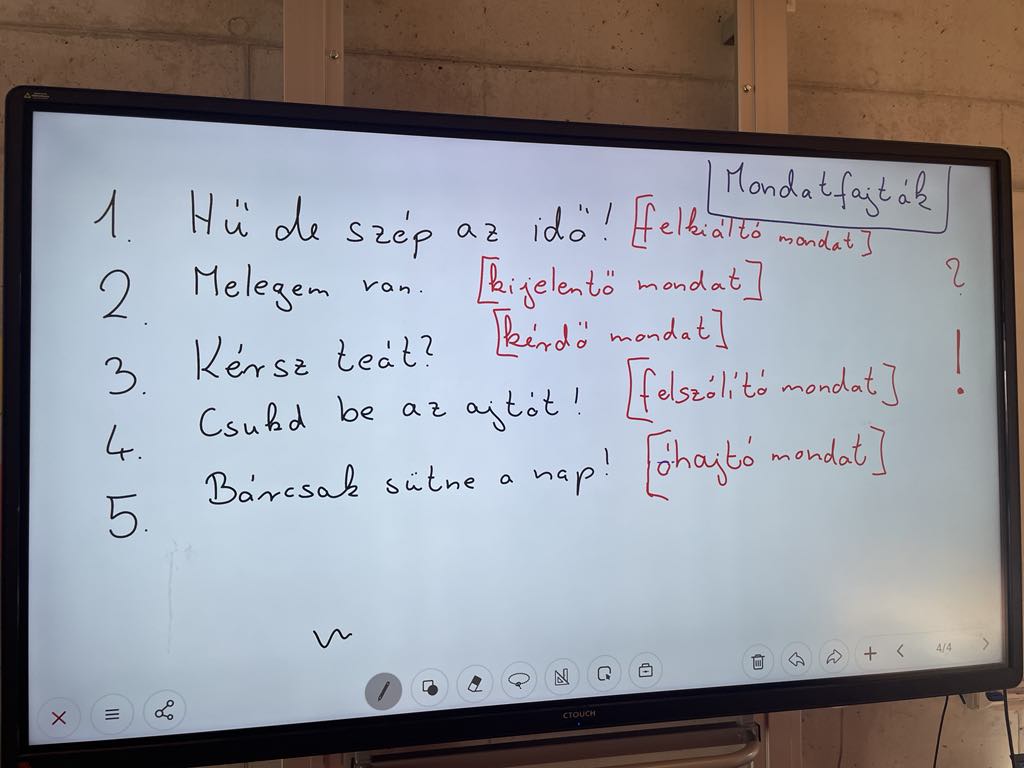 Mondatfajták
1. Hű de szép az idő! [felkiáltó mondat]
2. Melegem van. [kijelentő mondat]
3. Kérsz teát? [kérdő mondat]
4. Csukd be az ajtót! [felszólító mondat]
5. Bárcsak sütne a nap! [óhajtó mondat]
?
!
4/4
CTOUCH